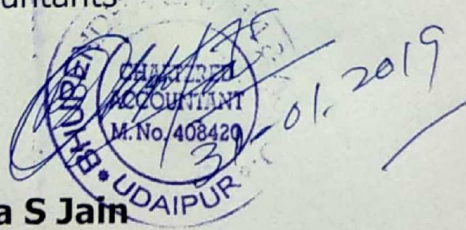 CHARTERED
ACCOUNTANT
M. No. 408420
UDAIPUR
31-01.2019
a S Jain